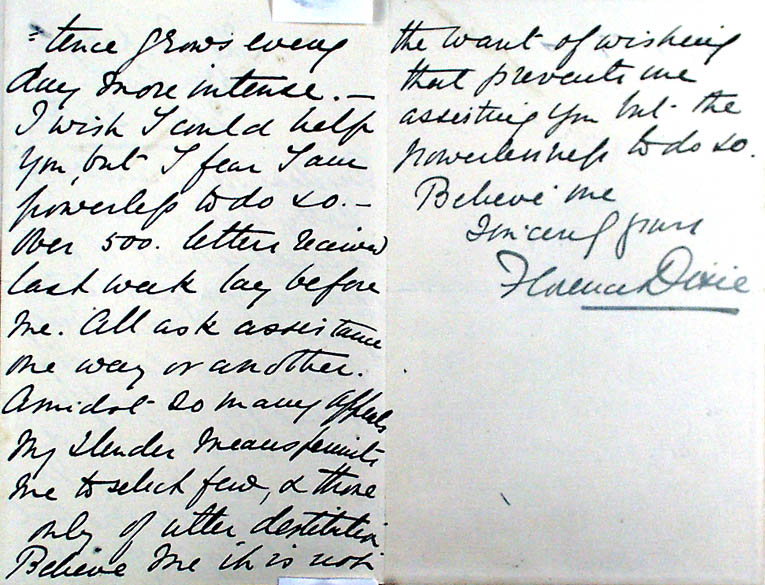 =tence grows every
day more intense. —
I wish I could help
you, but I fear I am
powerless to do so. —
Over 500. letters received
last week lay before
me. All ask assistance
one way or another.
Amidst so many appeals
my slender means permits
me to select few, & those
only of utter destitution
Believe me it is not
the want of wishing
that prevents me
assisting you but the
powerlessness to do so.
Believe me
Sincerely yours
Florence Dixie